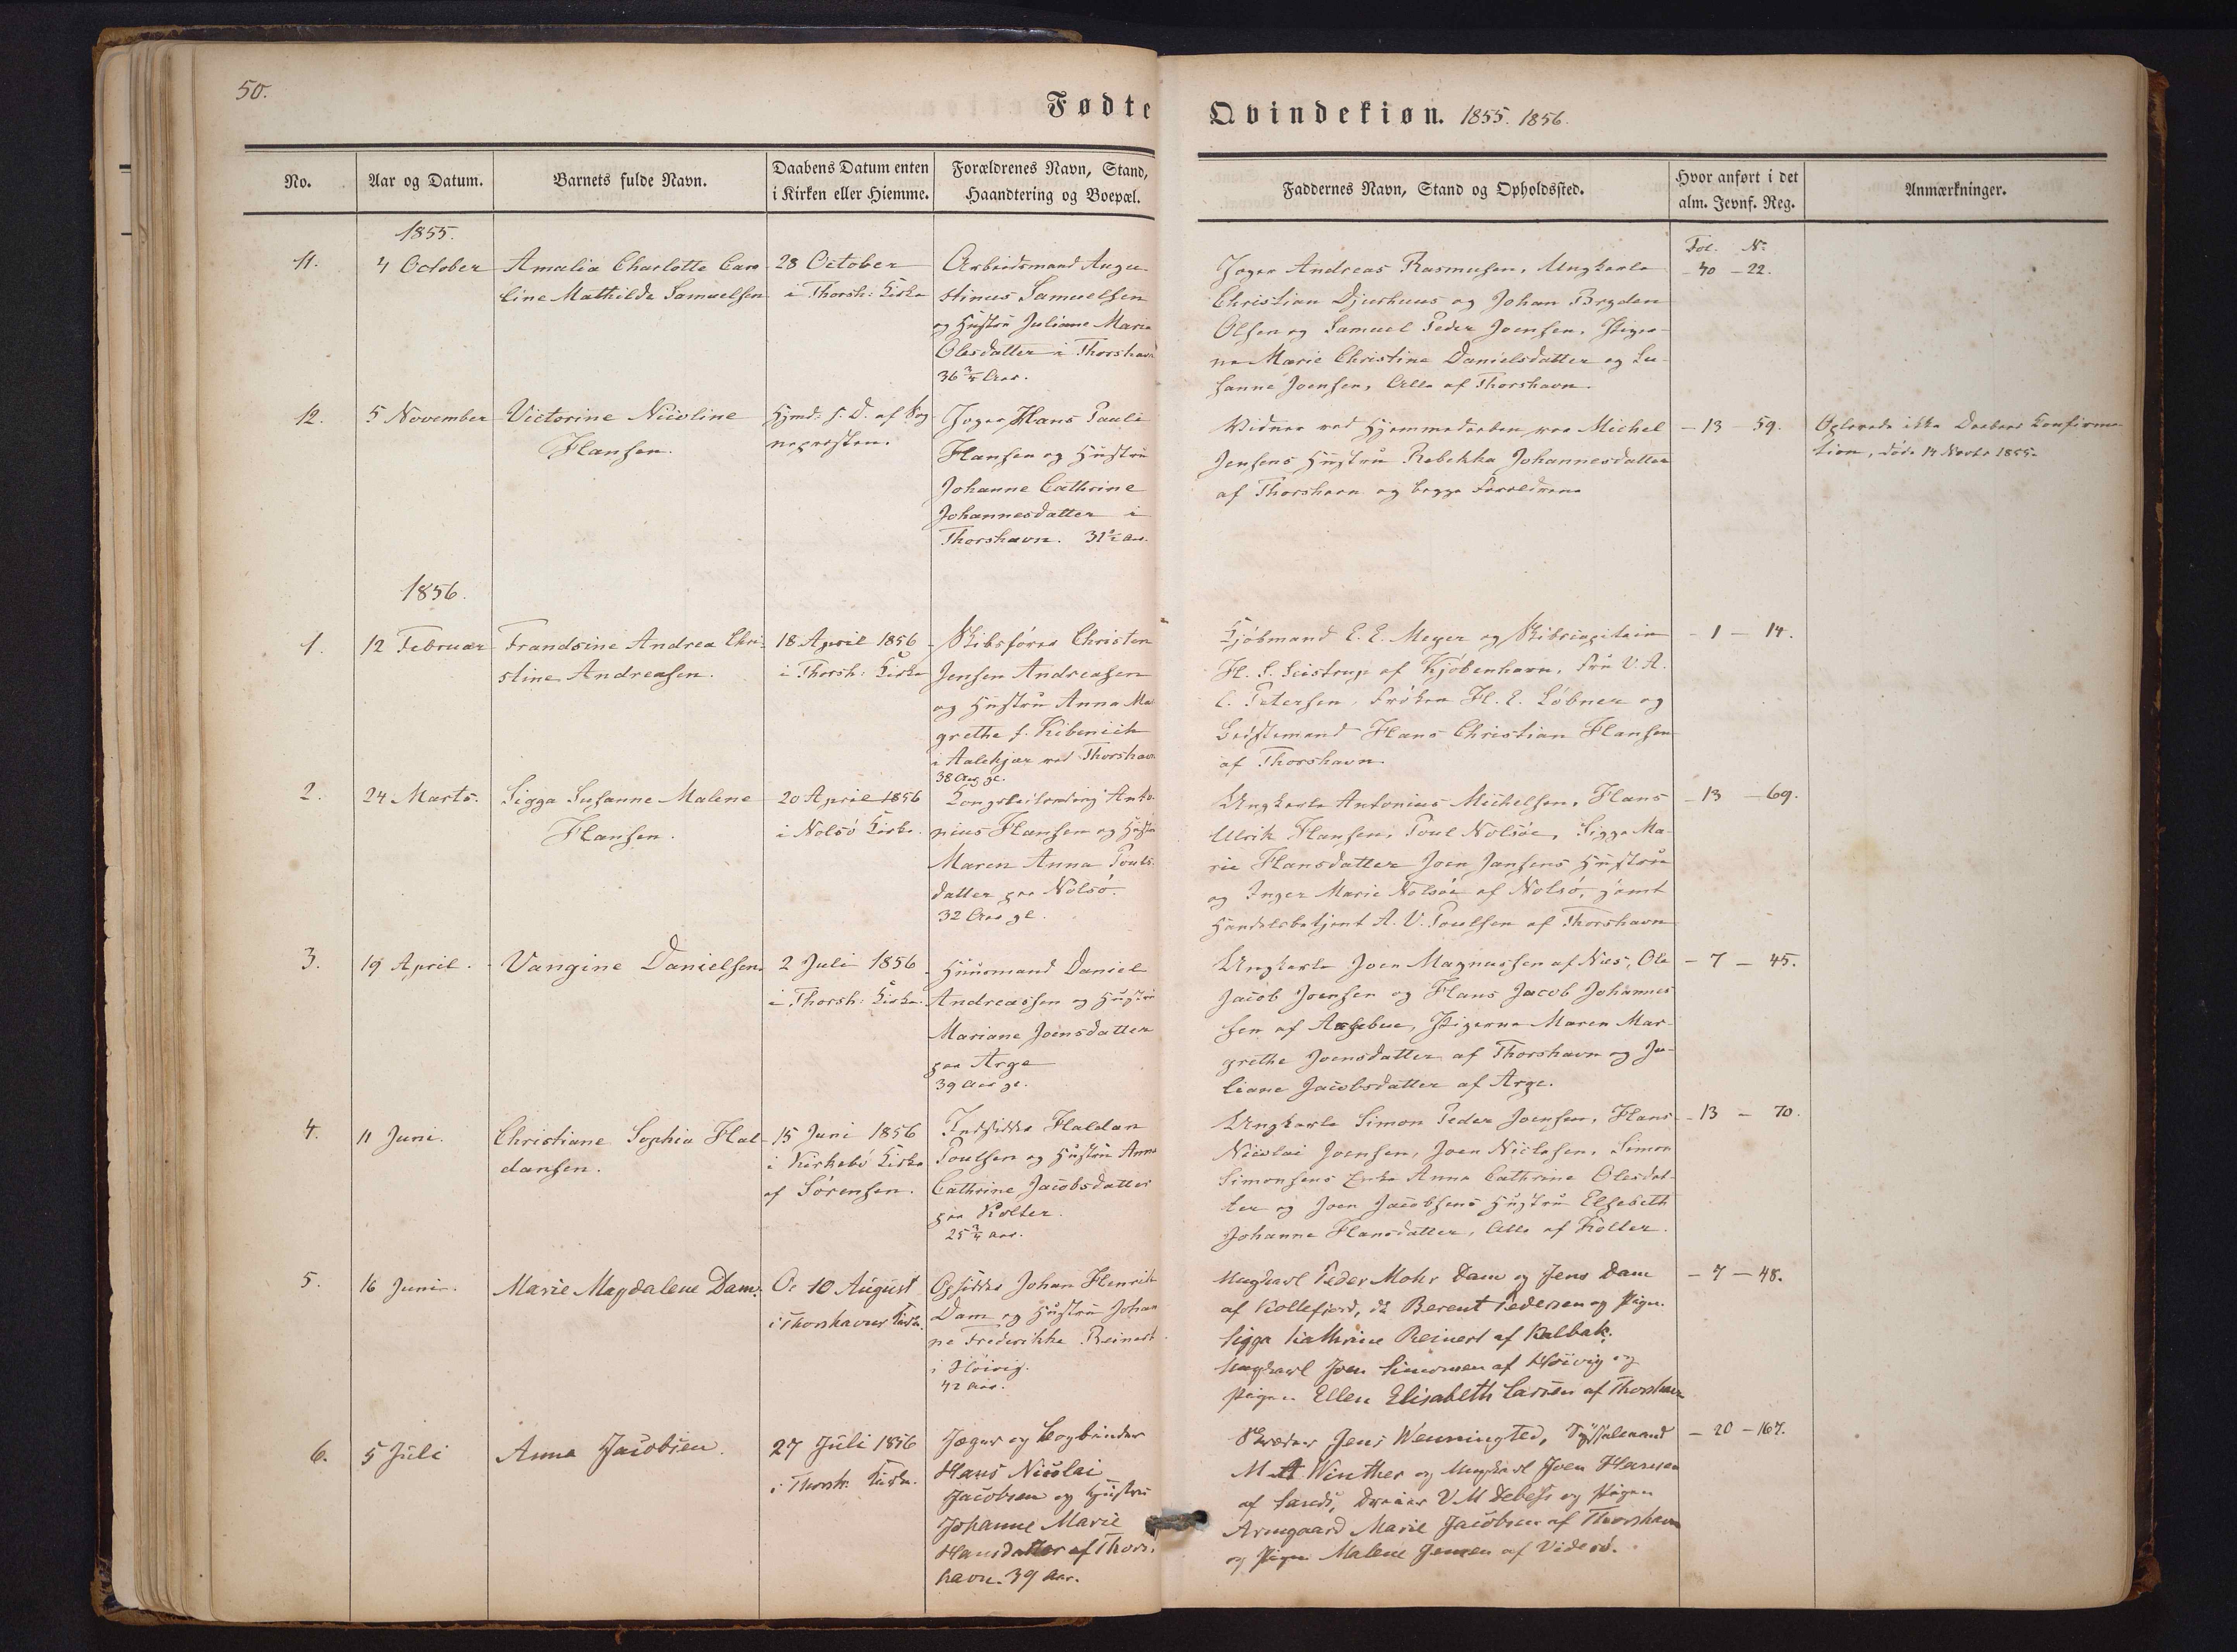 50.
Fødte
Qvindekiøn. 1855. 1856.
No.
Aar og Datum.
Barnets fulde Navn.
Daabens Datum enten
i Kirken eller Hiemme.
Forældrenes Navn, Stand,
Haandtering og Boepæl.
Faddernes Navn, Stand og Opholdssted.
Hvor anført i det
alm. Jevnf. Reg.
Anmærkninger.
1855.
11.
4 October
Amalia Charlotte Caro
line Mathilde Samuelsen
28 October
i Thorsh: Kirke
Arbeidsmand Augu-
stinus Samuelsen
og Hustru Juliane Marie
Olesdatter i Thorshavn
36 3/4 Aar.
Jæger Andreas Rasmusen, Ungkarle
Christian Djurhuus og Johan Brydon
Olsen og Samuel Peder Joensen, Piger-
ne Marie Christine Danielsdatter og Su-
sanne Joensen, Alle af Thorshavn.
Fol. No
- 40 - 22.
12.
5 November
Victorine Nicoline
Hansen.
Hjmd: s. D. af Sog
nepræsten.
Jæger Hans Pauli
Hansen og Hustru
Johanne Cathrine
Johannesdatter i
Thorshavn. 31 1/2 Aar.
Vidner ved Hjemmedaaben var Michel
Jensens Hustru Rebekka Johannesdatter
af Thorshavn og begge Forældrene
- 13 - 59.
Oplevede ikke Daabens Confirma-
tion, døde 14 Novbr 1855.
1856.
1.
12 Februar
Frandsine Andrea Chri-
stine Andreasen.
18 April 1856
i Thorsh: Kirke
Skibsfører Christen
Jensen Andreasen
og Hustru Anna Ma
grethe f. Kibenich
i Aalekjær ved Thorshavn
38 Aar gl.
Kjøbmand E. E. Meyer og Skibscapitain
H. S. Seistrup af Kjøbenhavn, Fru V. A.
C. Petersen, Frøken H. E. Løbner og
Hans Christian Hansen
af Thorshavn.
- 1 - 14.
2.
24 Marts.
Sigga Susanne Malene
Hansen.
20 April 1856
i Nolsø Kirke.
Kongsleilænding Anto-
nius Hansen og Hustru
Maren Anna Pouls-
datter paa Nolsø.
32 Aar gl.
Ungkarle Antonius Michelsen, Hans
Ulrik Hansen, Poul Nolsøe, Sigga Ma-
rie Hansdatter Joen Jansens Hustru
og Inger Marie Nolsøe af Nolsø, samt
Handelsbetjent A. V. Poulsen af Thorshavn
- 13 - 69.
3.
19 April.
Vangine Danielsen.
2 Juli 1856
i Thorsh: Kirke.
Huusmand Daniel
Andreassen og Hustru
Mariane Joensdatter
paa Arge
39 Aar gl.
Ungkarle Joen Magnussen af Næs, Ole
Jacob Joensen og Hans Jacob Johannes
sen af Axebue, Pigerne Maren Mar-
grethe Joensdatter af Thorshavn og Ju-
liane Jacobsdatter af Arge.
- 7 - 45.
4.
11 Juni.
Christiane Sophia Hal-
dansen.
15 Juni 1856
i Kirkebø Kirke
af Sørensen.
Indsidder Haldan
Poulsen og Hustru Anna
Cathrine Jacobsdatter
paa Kolter.
25 3/4 Aar.
Ungkarle Simon Peder Joensen, Hans
Nicolai Joensen, Joen Niclasen, Simon
Simonsens Enke Anna Cathrine Olesdat-
ter og Joen Jacobsens Hustru Elsebeth
Johanna Hansdatter, Alle af Kolter.
- 13 - 70.
5.
16 Juni.
Marie Magdalene Dam.
10 August
i Thorshavns Kirke.
Opsidder Johan Henrik
Dam og Hustru Johan
ne Frederikke Reinert
i Høivig.
42 Aar.
Ungkarl Peder Mohr Dam og Jens Dam
af Kollefjord, do Berent Pedersen og Pigen
Sigga Kathrine Reinert af Kalbak.
Ungkarl Joen Simonsen af Høivig og
Pigen Ellen Elisabeth Larsen af Thorshavn
- 7 - 48.
6.
5 Juli
Anna Jacobsen.
27 Juli 1856
i Thorsh. Kirke.
Jæger og Bogbinder
Hans Nicolai
Jacobsen og Hustru
Johanne Marie
Hansdatter af Thors-
havn. 39 Aar.
Skræder Jens Wenningted, Sysselmand
M. A. Winther og Ungkarl Joen Hansen
af Sandø, V. M. Debess og Pigen
Armgaard Marie Jacobsen af Thorshavn
og Pigen Malene Jensen af Viderø.
- 20 - 167.